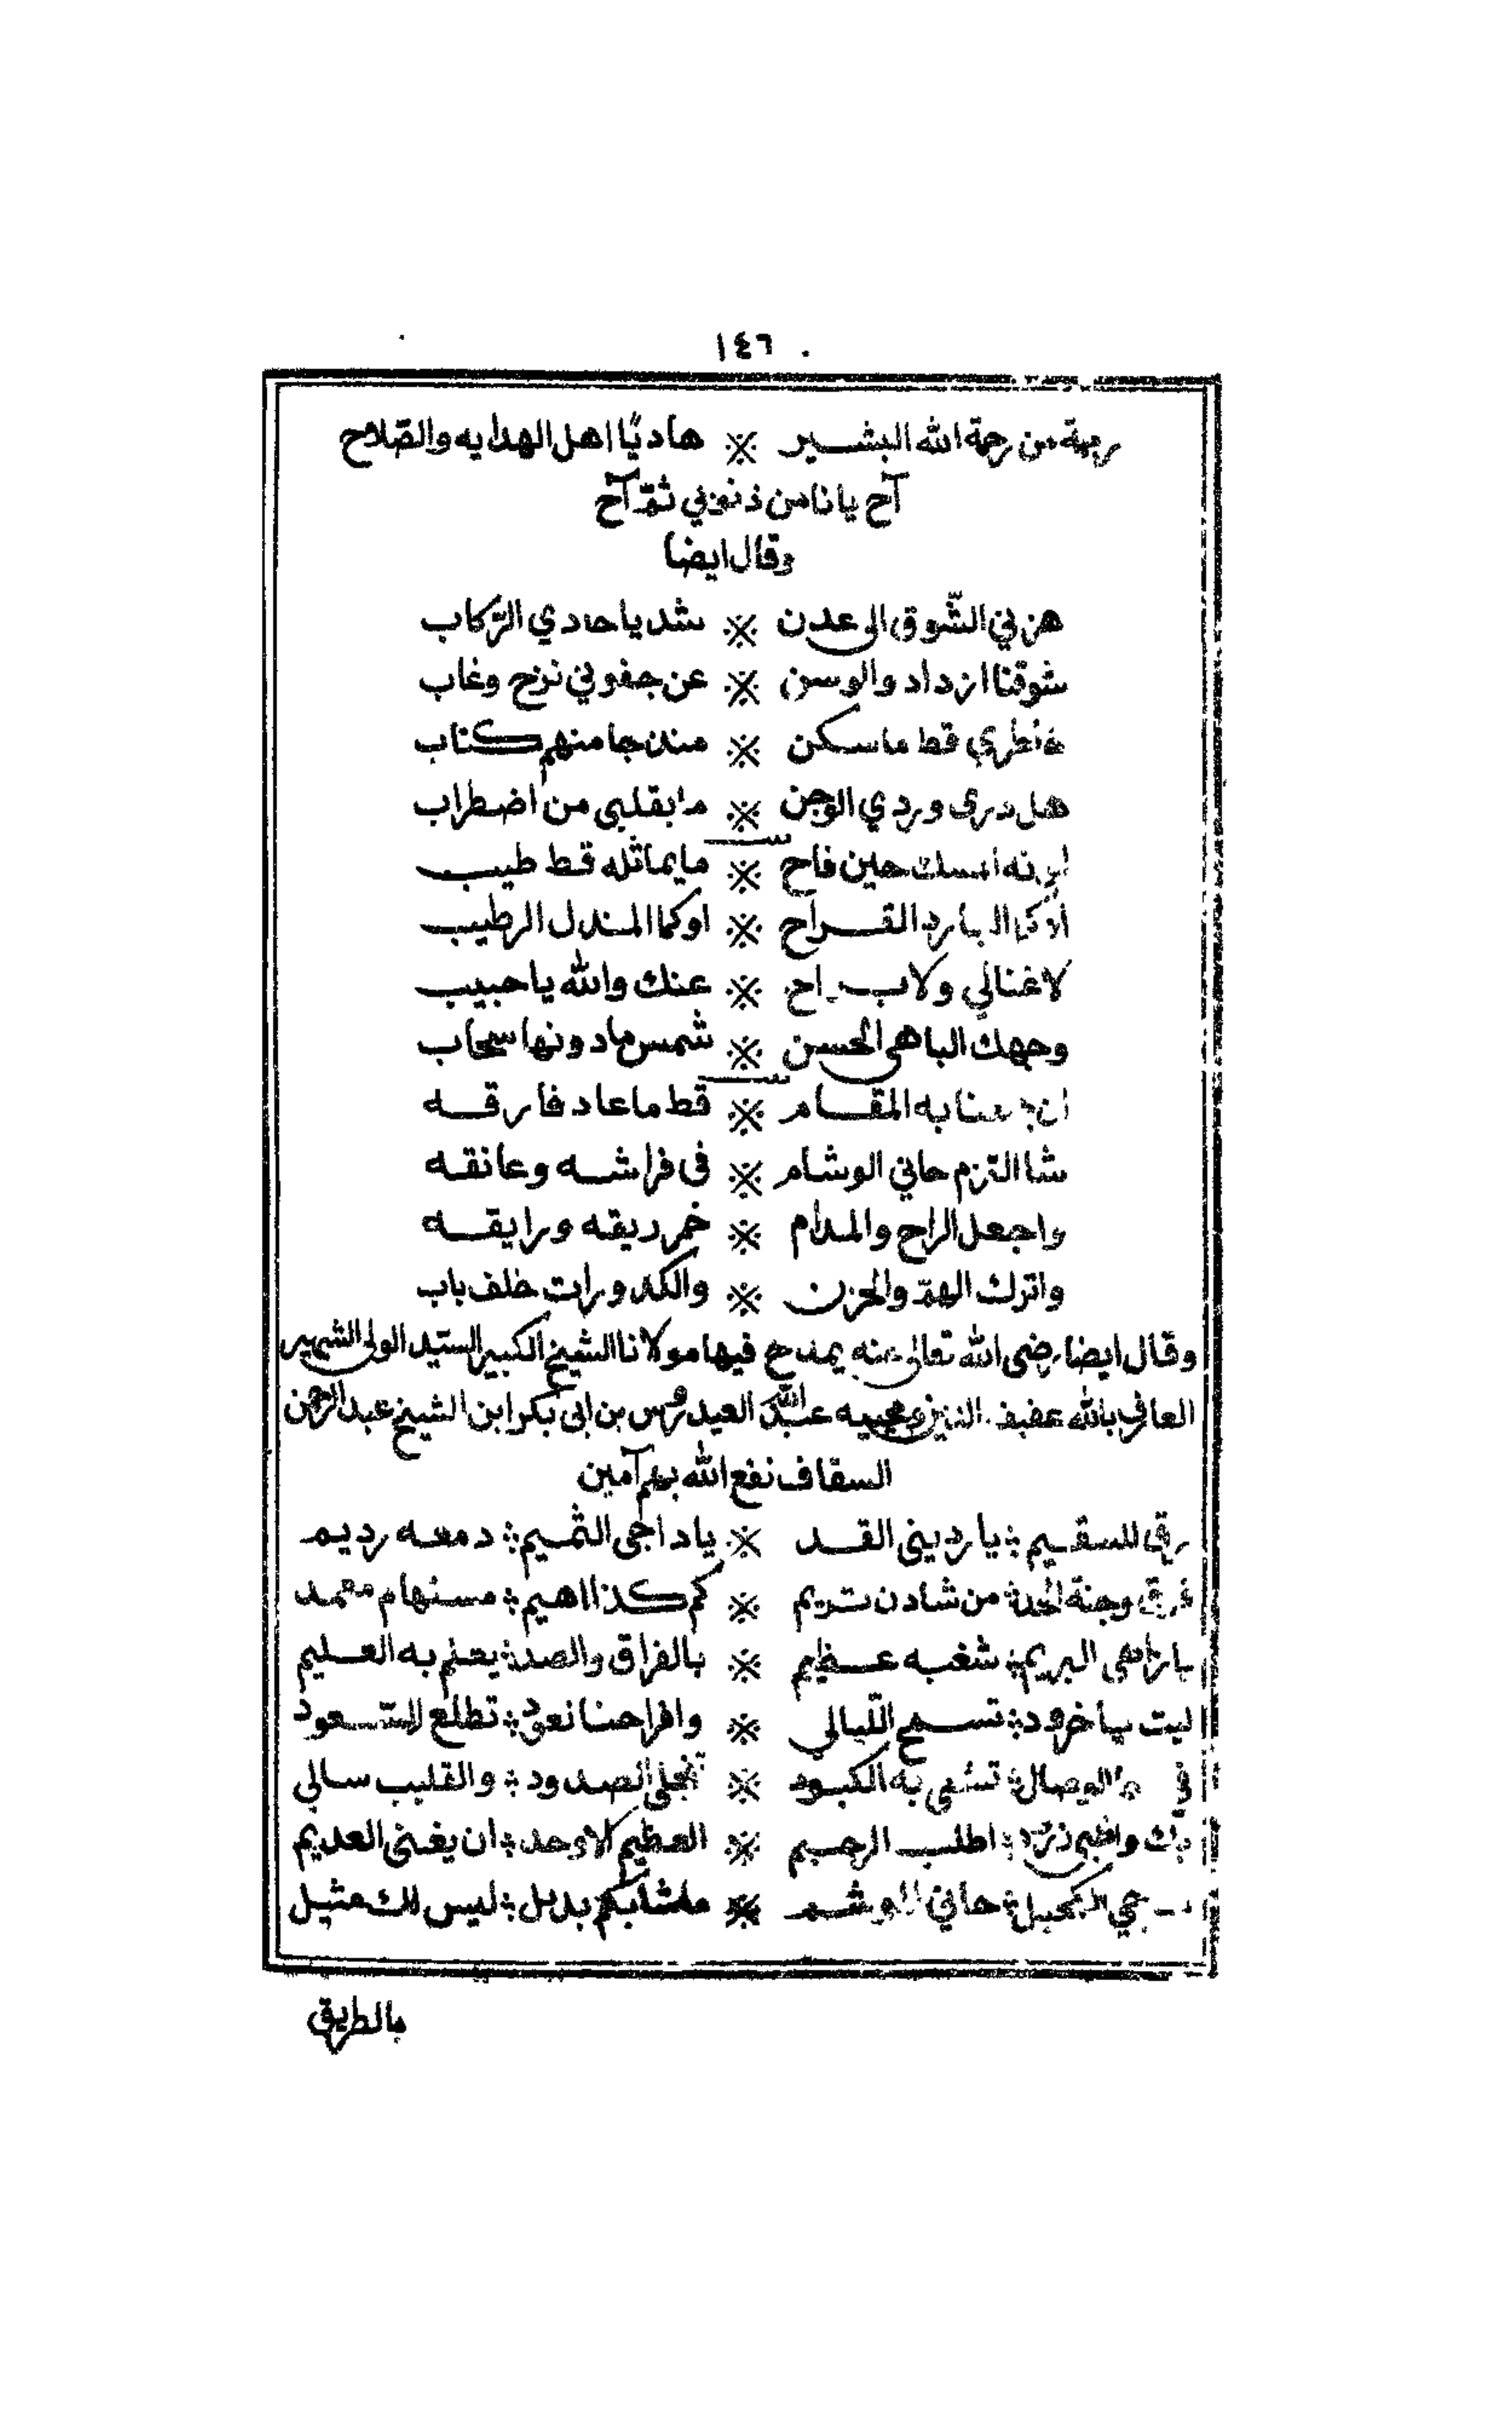 ١٤٦
رحمة من رحمة الله البشير ※ هاديًا اهل الهدايه والصّلاح
آح يا نا من ذنوبي ثمّ آح
وقال ايضا
هزني الشّوق الى عدن ※ شد يا حادي الرّكاب
شوقنا ازداد والوسن ※ عن جفوني نزح وغاب
خاطري قط ما سكن ※ منذ جا منهم كتاب
هل درى وردي الوجن ※ ما بقلبي من اضطراب
لونه المسك حين فاح ※ ما يماثله قط طيب
او كما البارد القراح ※ او كما المندل الرطيب
لا غنالي ولا براح ※ عنك والله يا حبيب
وجهك الباهى الحسن ※ شمس ما دونها سحاب
ان جمعنا به المقام ※ قط ما عاد فارقه
شا التزم حاني الوشام ※ فى فراشه وعانقه
واجعل الراح والمدام ※ خمر ريقه ورايقه
واترك الهمّ والحزن ※ والكدورات خلف باب
وقال ايضا رضى الله تعالى عنه يمدح فيها مولانا الشيخ الكبير السيّد الولى الشهير
العارف بالله عفيف الدين ومحييه عبد الله العيدروس بن ابى بكر ابن الشيخ عبد الرحمن
السقاف نفع الله بهم آمين
رقى للسقيم ؛ يا رديني القد ※ يا داجى الثميم ؛ دمعه رديم
وجنة الخد ؛ من شادن تريم ※ كم كذا اهيم ؛ مستهام معمد
يا زاهى البريم ؛ شغبه عظيم ※ بالفراق والصد ؛ يعلم به العليم
ليت يا خرود ؛ تسمح اللّيالي ※ وافراحنا تعود ؛ تطلع السّعود
في الوصال ؛ تشفى به الكبود ※ تنجلى الصدود ؛ والقليب سالي
اطلب الرحيم ※ العظيم الاوحد ؛ ان يغنى العديم
حاني الوشم ※ ما شا بكم بديل ؛ ليس لك مثيل
بالطريق